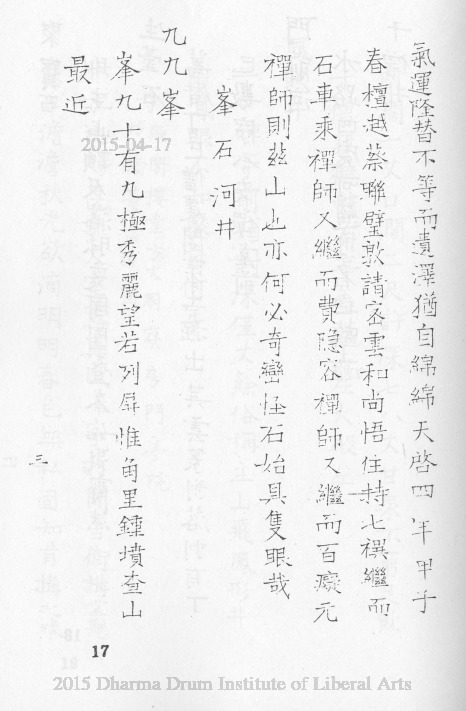 氣運隆替不等而遺澤猶自綿綿天啓四年甲子
春檀越蔡聯璧敦請密雲和尚悟住持七禩繼而
石車乘禪師又繼而費隐容禪師又繼而百癡元
禪師則茲山也亦何必奇巒怪石始具隻眼哉
峯石河井
九九峯
峯九十有九極秀麗望若列屏惟角里鍾墳查山
最近
三
17
2015-04-17
2015 Dharma Drum Institute of Liberal Arts